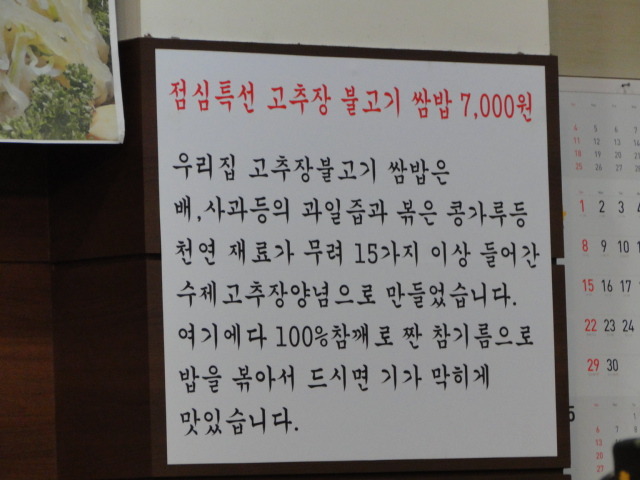 점심특선 고추장 불고기 쌈밥 7,000원
우리집 고추장불고기 쌈밥은
배,사과등의 과일즙과 볶은 콩가루등
천연 재료가 무려 15가지 이상 들어간
수제고추장양념으로 만들었습니다.
여기에다 100%참깨로 짠 참기름으로
밥을 볶아서 드시면 기가 막히게
맛있습니다.
4 5 6 7
11 12 13 14
18 19 20 21
25 26 27 28
1 2 3 4
8 9 10
15 16 17
22 23 24
29 30
5
6
13
20
27